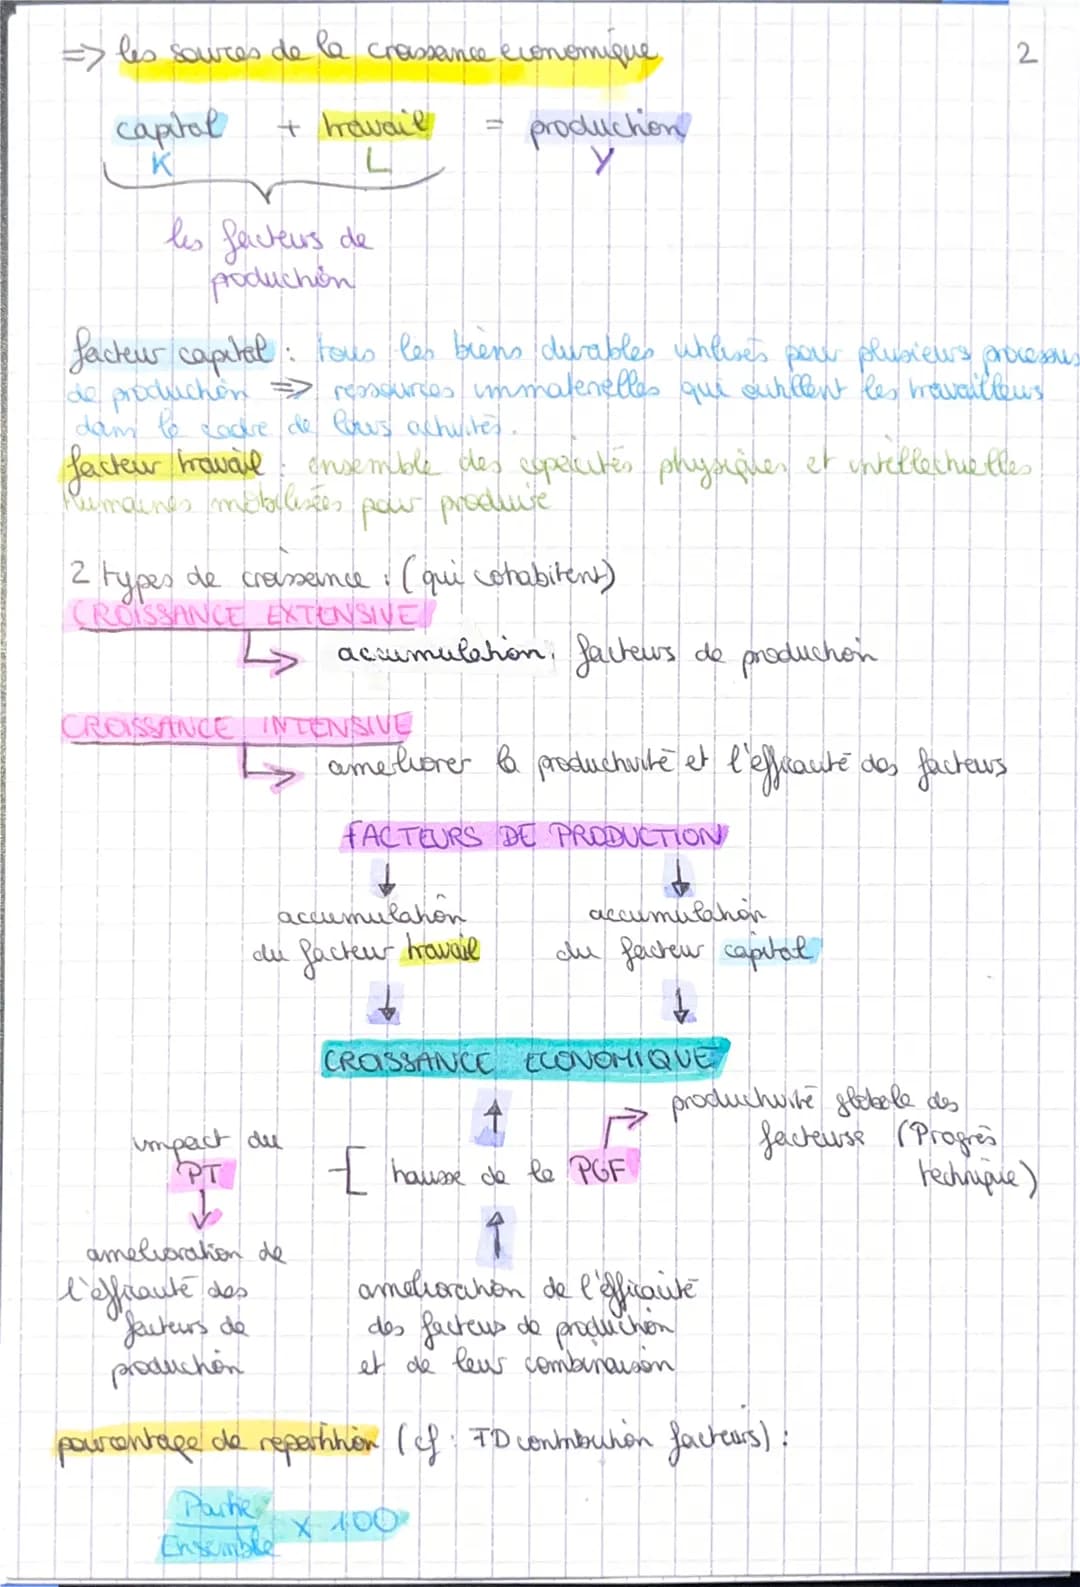 => les sources de la croissance economique
2
capital + travail = production
K L Y
les facteurs de
production
facteur capital : tous les biens durables utilisés pour plusieurs processus
de production => ressources immaterielles qui outillent les travailleurs
dans le cadre de leurs activités.
facteur travail : ensemble des capacités physiques et intellectuelles
humaines mobilisées pour produire
2 types de croissance : (qui cohabitent)
CROISSANCE EXTENSIVE
accumulation facteurs de production
CROISSANCE INTENSIVE
ameliorer la productivité et l'efficacité des facteurs
FACTEURS DE PRODUCTION
accumulation accumulation
du facteur travail du facteur capital
CROISSANCE ECONOMIQUE
productivité globale des
facteurse (Progrès
technique)
impact du
PT
hausse de la PGF
amelioration de
l'efficacité des
facteurs de
production
amelioration de l'efficacité
des facteurs de production
et de leur combinaison
pourcentage de repartition (cf : TD contribution facteurs) :
Partie
Ensemble
x 100